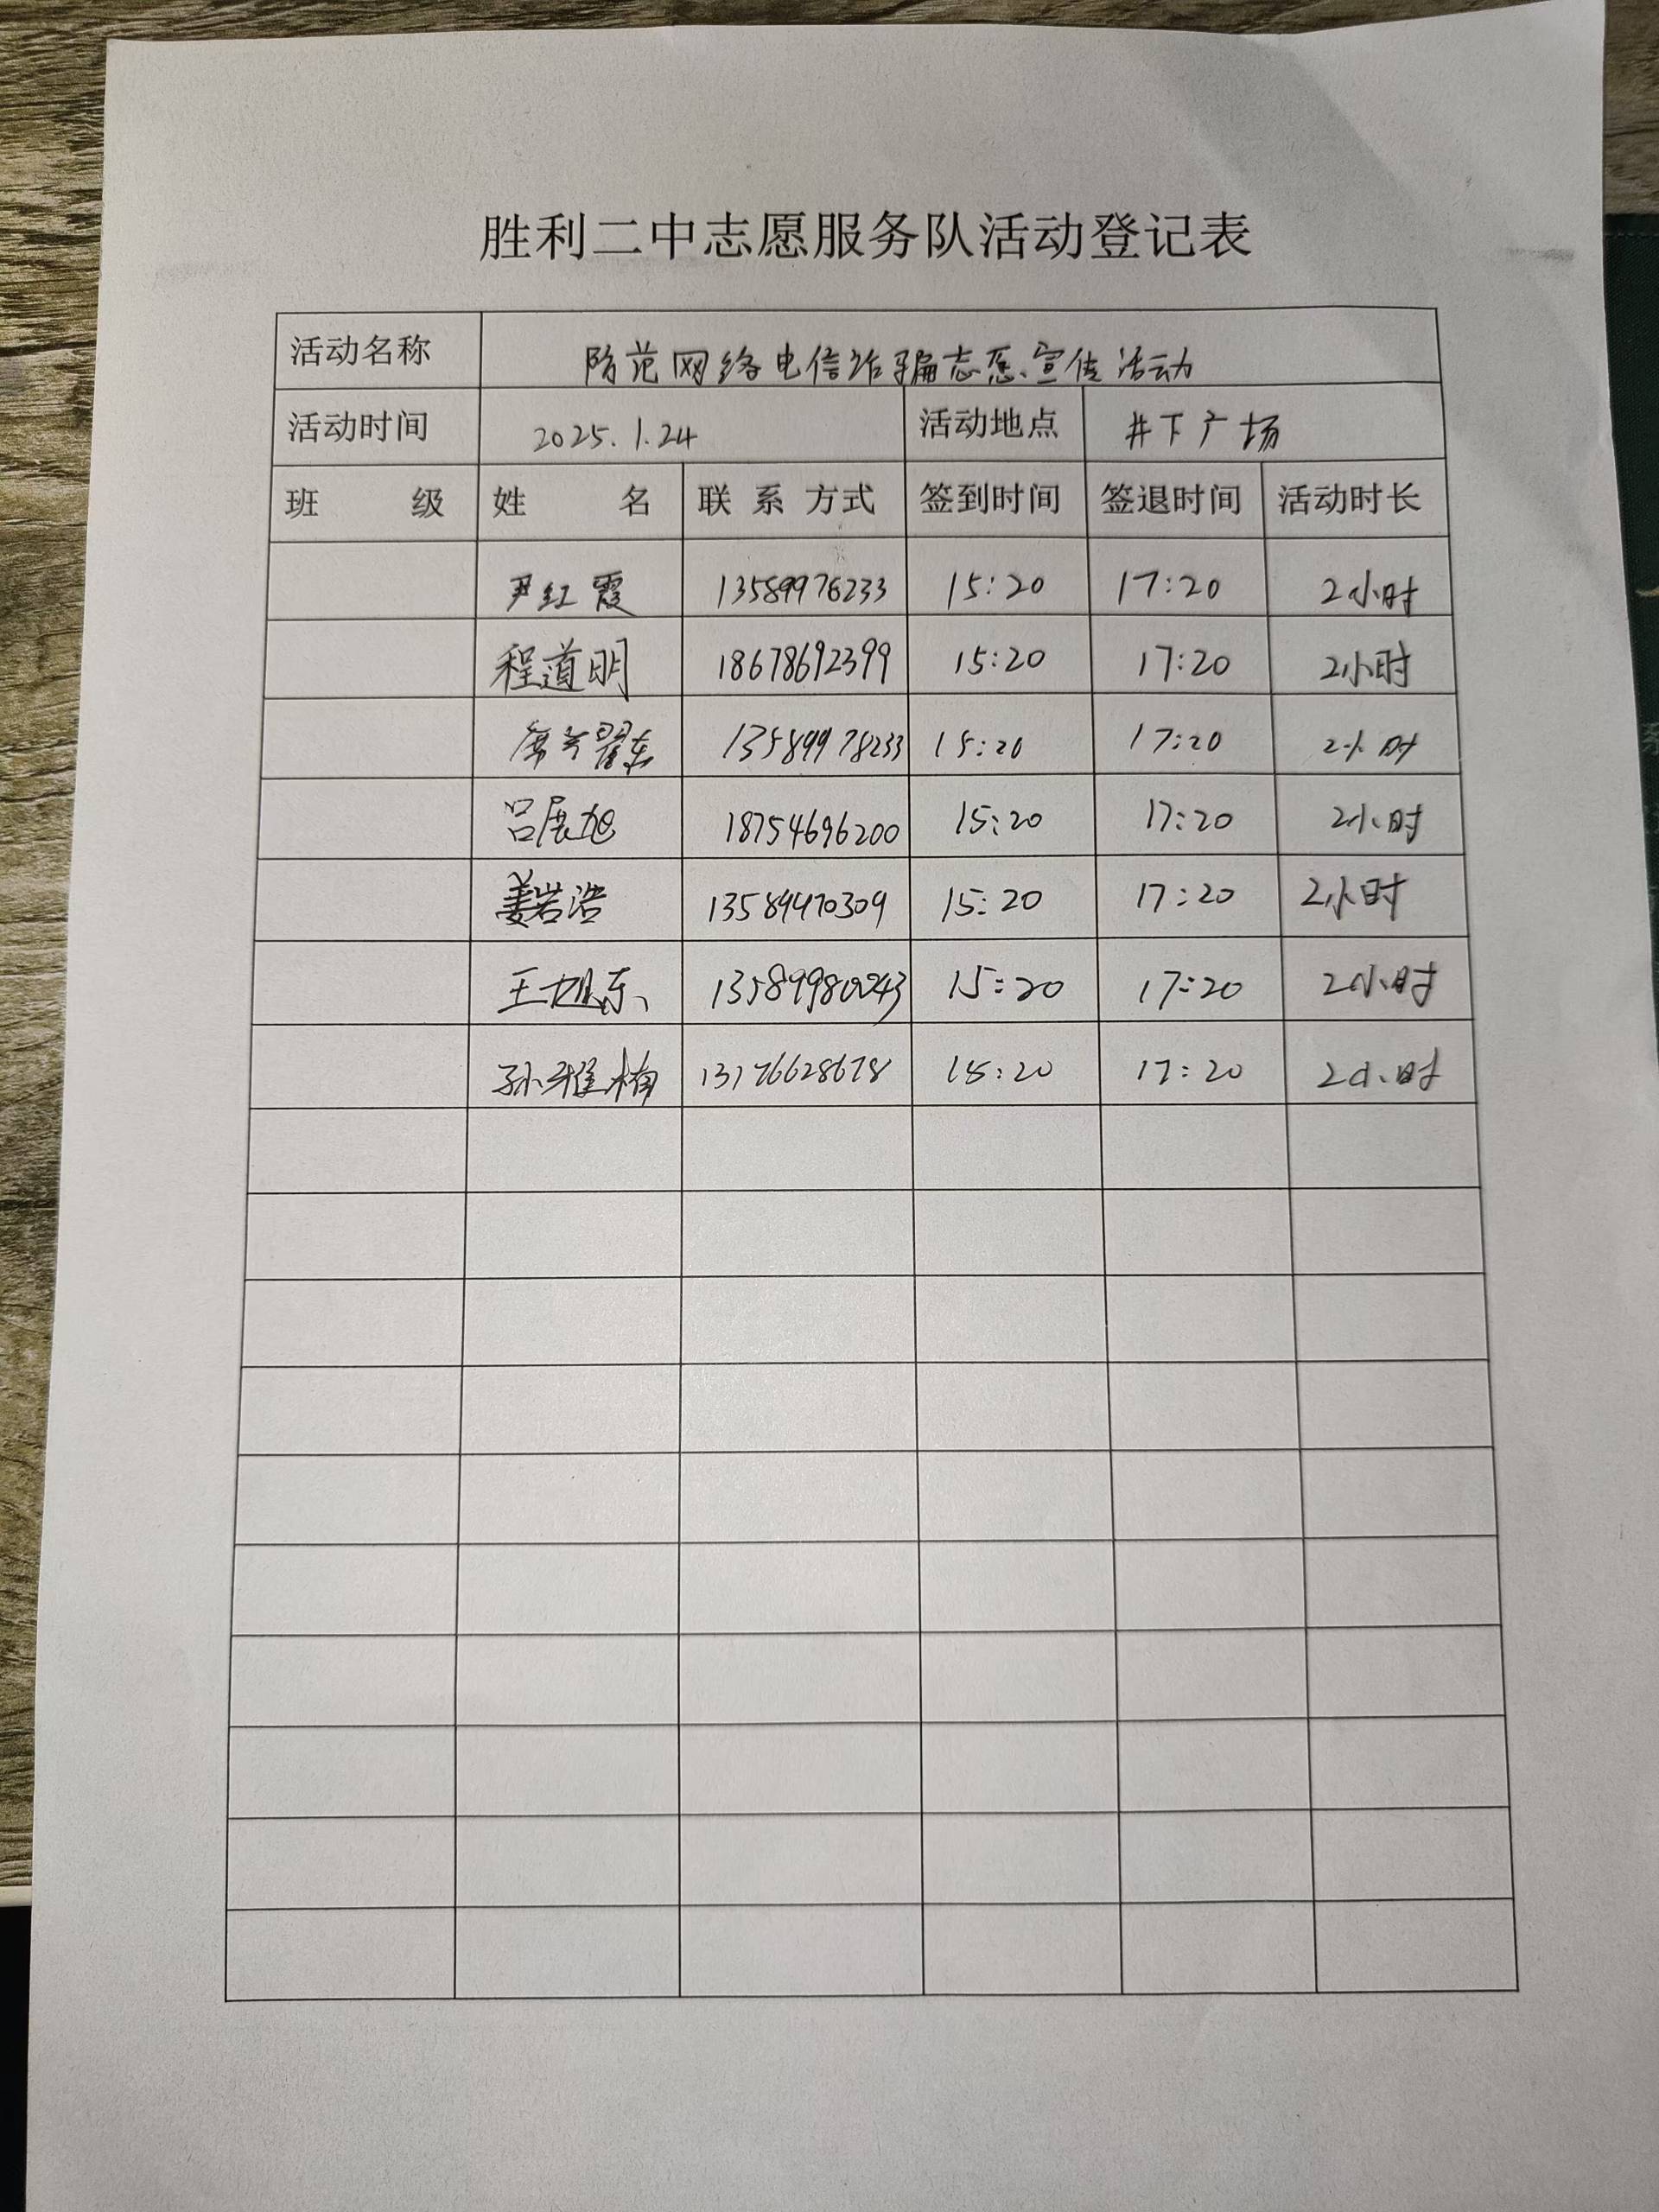 胜利二中志愿服务队活动登记表
活动名称 防范网络电信诈骗志愿宣传活动
活动时间 2025.1.24 活动地点 井下广场
班 级 姓 名 联 系 方式 签到时间 签退时间 活动时长
尹红霞 13589976233 15:20 17:20 2小时
程道明 18678692399 15:20 17:20 2小时
13589978233 15:20 17:20 2小时
吕展旭 18754696200 15:20 17:20 2小时
姜岩浩 13589470309 15:20 17:20 2小时
王旭东 15:20 17:20 2小时
孙雅楠 13176628678 15:20 17:20 2小时